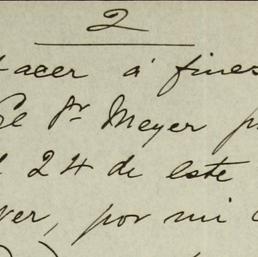 2
acer á fines
El Sr Meyer p
24 de este
ver, por mi